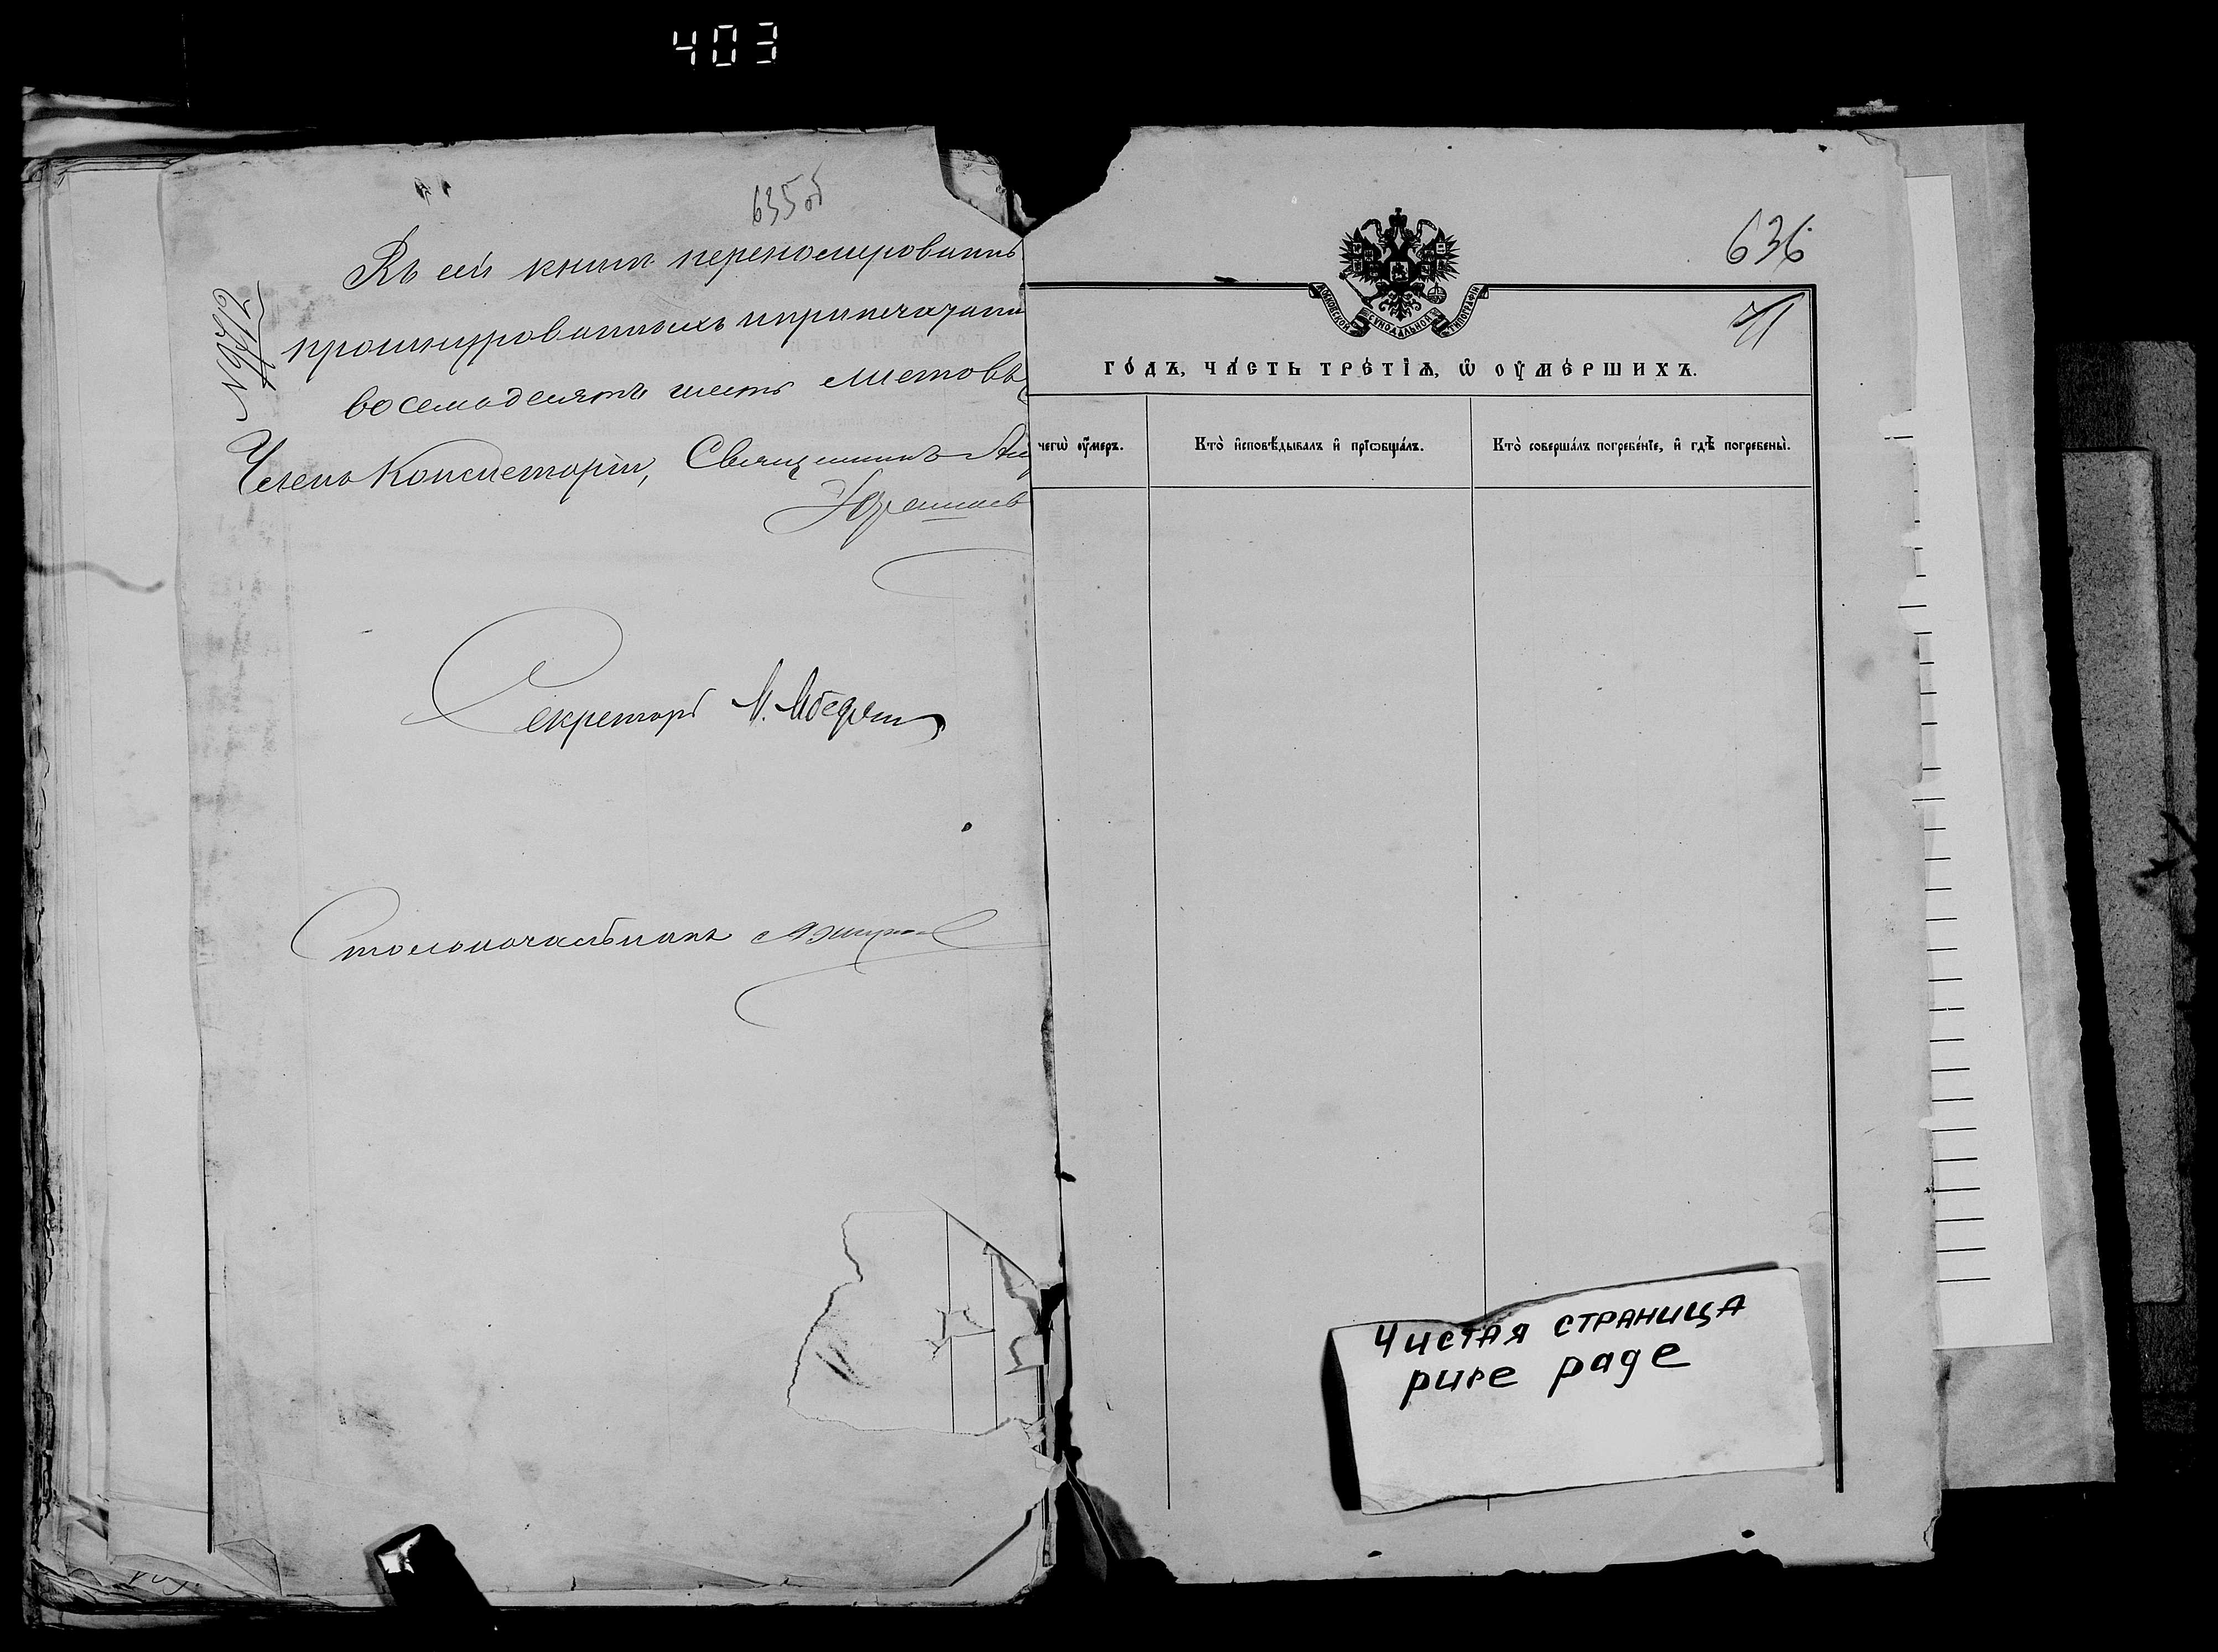 403
635об
Въ сей книги переномерованныхъ
прошнурованныхъ и припечатанн
восемьдесятъ шесть листовъ
№ 9772
Членъ Консисторіи, Священникъ
Секретарь М.
Столоначальникъ
636
МОСКОВСКОЙ СѴНОДАЛЬНОЙ ТИПОГРАФІИ
71
ГО́ДЪ, ЧА́СТЬ ТРЕ́ТІѦ, Ѡ҆ ОУ҆МЕ́РШИХЪ.
чегѡ̀ ᲂу҆́меръ.
Кто̀ и҆сповѣ́дывалъ и҆ прїѡбща́лъ.
Кто̀ соверша́лъ погребе́нїе, и҆ гдѣ̀ погребены̀.
Чистая страница
pure page